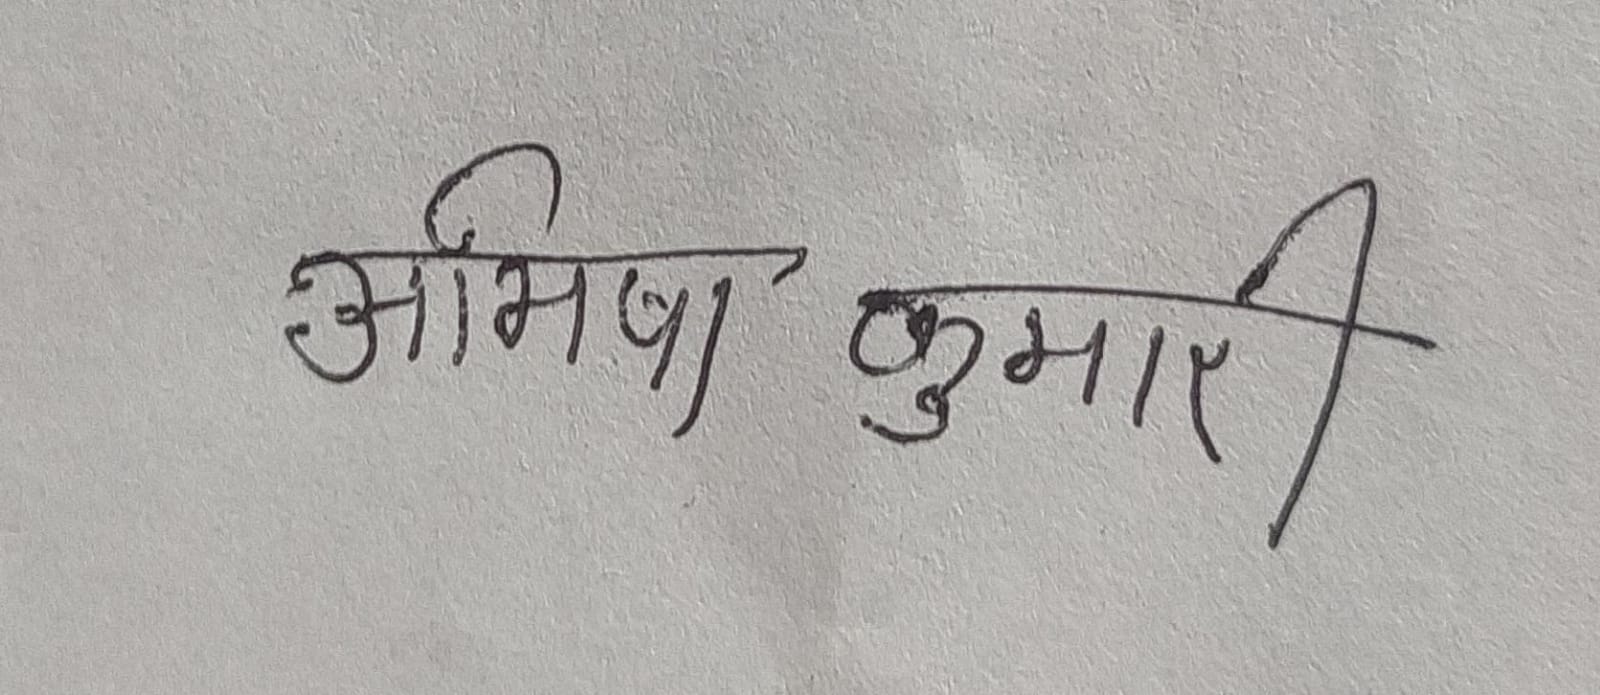 अमिषा कुमारी